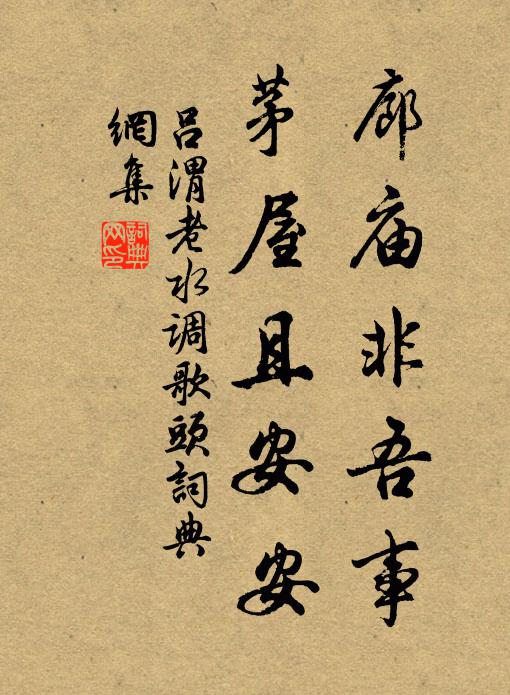 廊庙非吾事
茅屋且安安
吕渭老水调歌头詞典
網集
詞典
网印